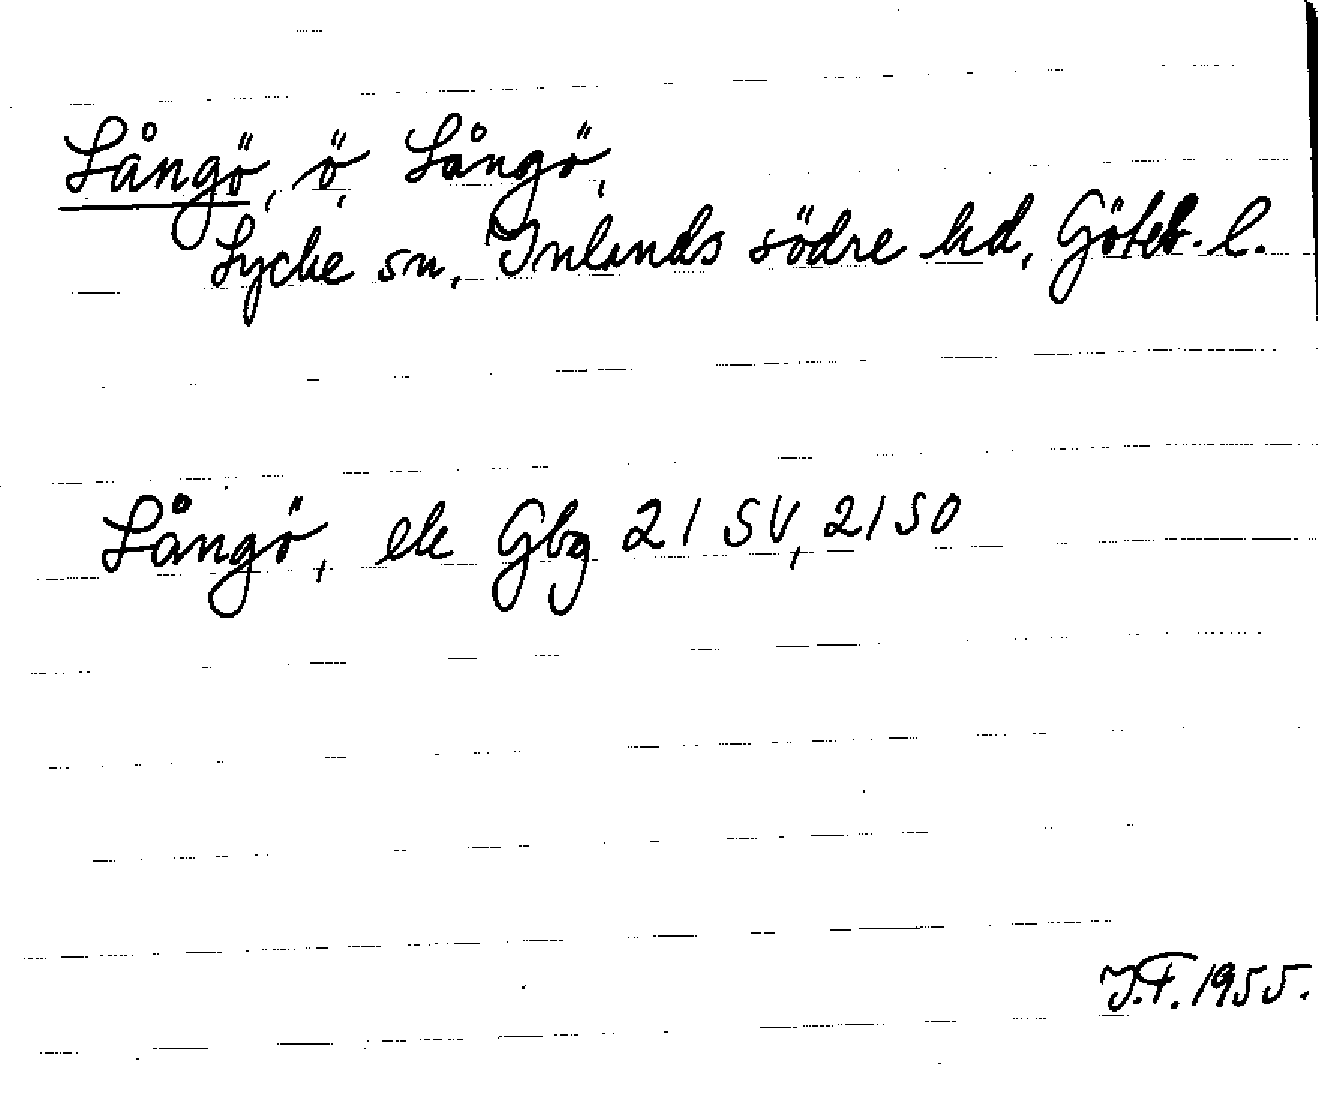 Långö, ö, Långö,
Lycke sn, Inlands södre hd, Göteb. l.
Långö, ek Gbg 21 SV, 21 SO
J.F. 1955.